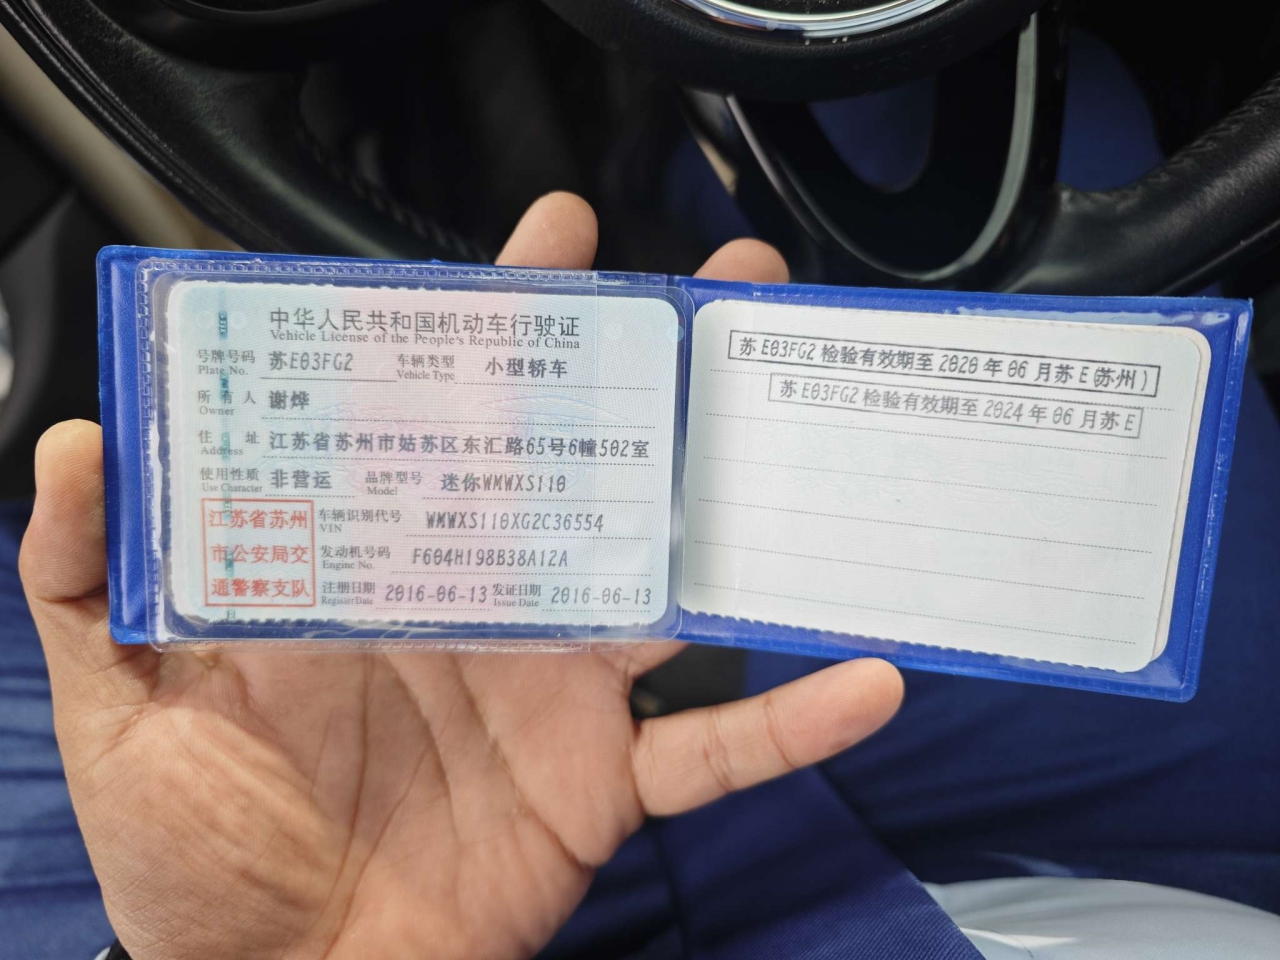 中华人民共和国机动车行驶证
Vehicle License of the People's Republic of China
号牌号码 苏E03FG2 车辆类型 小型轿车
Plate No. Vehicle Type
所有人 谢烨
Owner
住址 江苏省苏州市姑苏区东汇路65号6幢502室
Address
使用性质 非营运 品牌型号 迷你WMWXS110
Use Character Model
江苏省苏州
市公安局交
通警察支队
车辆识别代号 WMWXS110XG2C36554
VIN
发动机号码 F604H198B38A12A
Engine No.
注册日期 2016-06-13 发证日期 2016-06-13
Register Date Issue Date
苏E03FG2检验有效期至2020年06月苏E(苏州)
苏E03FG2检验有效期至2024年06月苏E